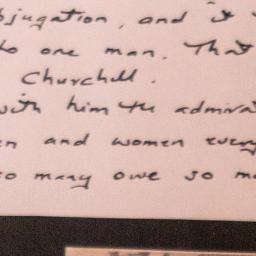 bjugation, and it
to one man. That
Churchill.
with him the admirat
en and women every
so many owe so m